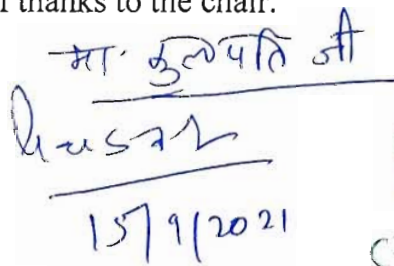 thanks to the chair.
मा. कुलपति जी
15/9/2021